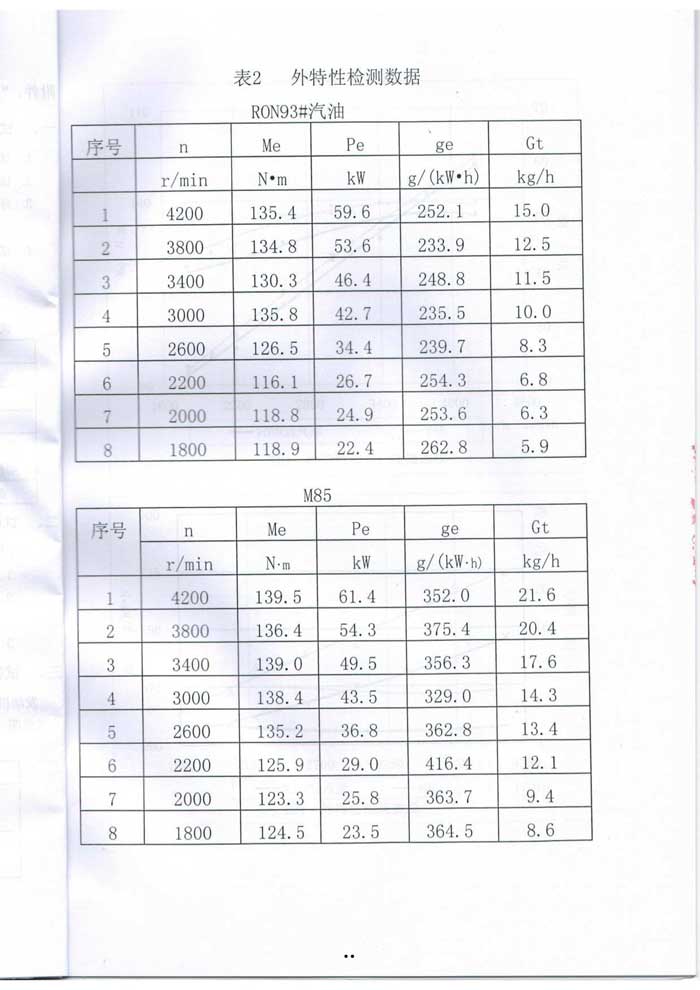 表2 外特性检测数据
RON93#汽油
序号 n Me Pe ge Gt
r/min N•m kW g/(kW•h) kg/h
1 4200 135.4 59.6 252.1 15.0
2 3800 134.8 53.6 233.9 12.5
3 3400 130.3 46.4 248.8 11.5
4 3000 135.8 42.7 235.5 10.0
5 2600 126.5 34.4 239.7 8.3
6 2200 116.1 26.7 254.3 6.8
7 2000 118.8 24.9 253.6 6.3
8 1800 118.9 22.4 262.8 5.9
M85
序号 n Me Pe ge Gt
r/min N·m kW g/(kW·h) kg/h
1 4200 139.5 61.4 352.0 21.6
2 3800 136.4 54.3 375.4 20.4
3 3400 139.0 49.5 356.3 17.6
4 3000 138.4 43.5 329.0 14.3
5 2600 135.2 36.8 362.8 13.4
6 2200 125.9 29.0 416.4 12.1
7 2000 123.3 25.8 363.7 9.4
8 1800 124.5 23.5 364.5 8.6